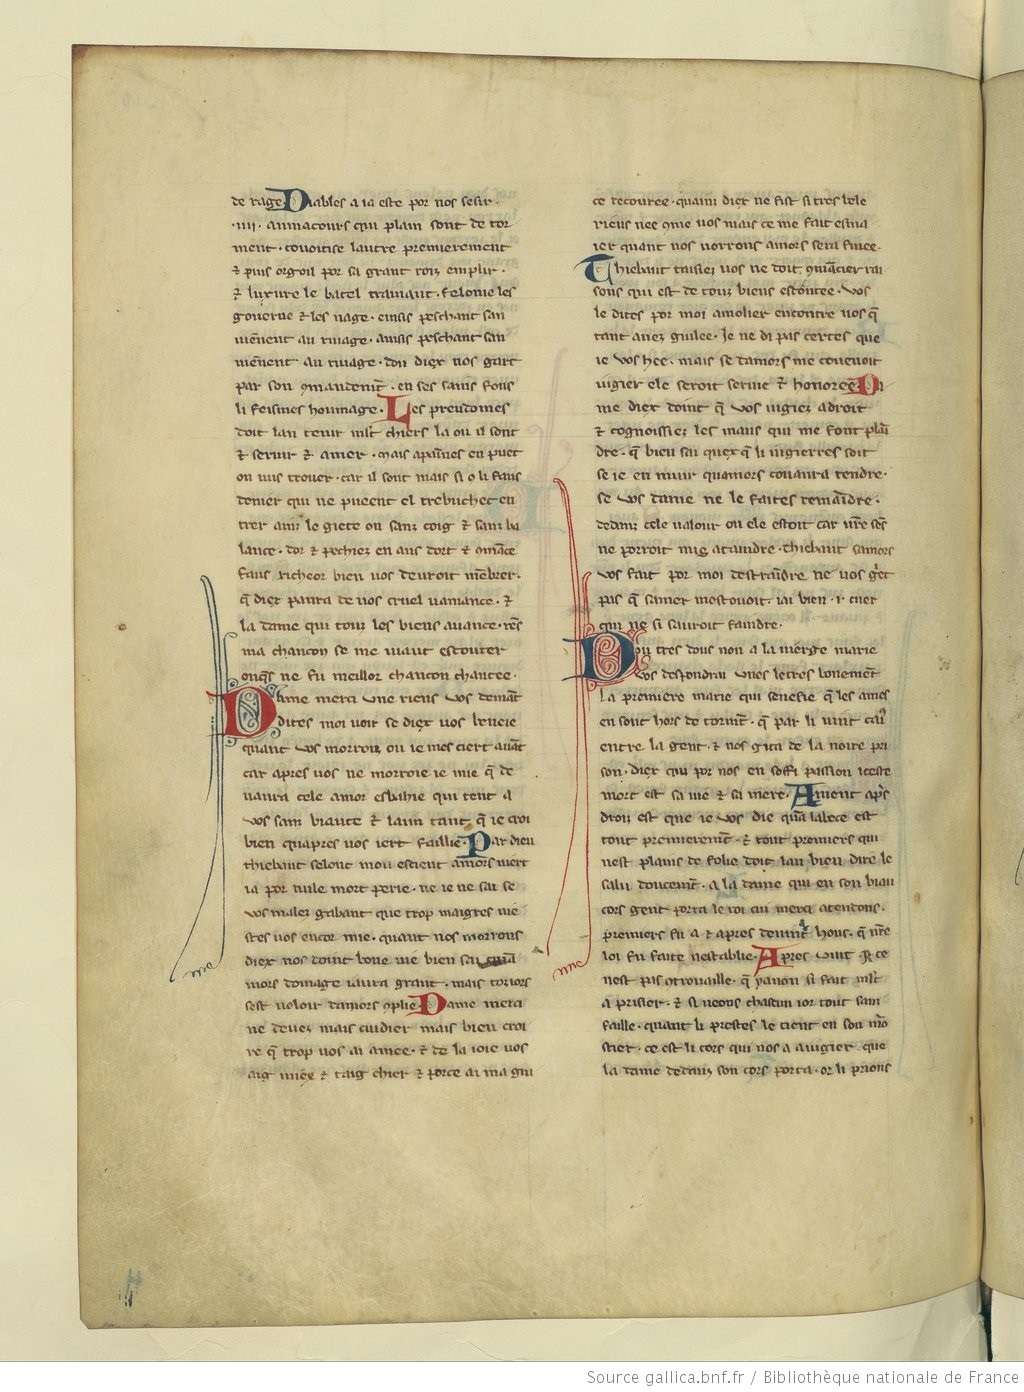 de rage. Diables a ia este por nos sesir.
.iiii. aimacours qui plain sont de tor
ment. couoitise lautre premierement
⁊ puis orgoil por sa grant roiz emplir.
⁊ luxure le batel trainant. felonie les
gouerne ⁊ les nage. einsis peschant san
uienent au riuage. ainsis peschant san
uienēt au riuage. don diex nos gart
par son 9mandemēt. en ses sains fons
li feismes houmage. Les preudomes
doit lan tenir mlt̄ chiers la ou il sont
⁊ seruir ⁊ amer. mais apaines en puet
on nus trouer. car il sont mais si o li faus
denier qui ne pueent el trebuchet en
trer ainz le giete on sanz coig ⁊ sanz ba
lance. tor ⁊ pechiez en aus tort ⁊ 9māce
faus richeor bien uos deuroit mēbrer.
q̄ diex panra de uos cruel uaniance. ⁊
la dame qui touz les biens auance. rēs
ma chancon se me uiaut escouter
onqs ne fu meilloz chancon chantee.
Dame merci une riens uos demāt
dites moi uoir se diex uos beneie
quant uos morroiz ou ie mes ciert auāt
car apres uos ne morroie ie mie q̄ de
uanra cele amor esbahie qui tent a
uos sanz biaute ⁊ lain tant q̄ ie croi
bien quapres uos iert faillie. Par dieu
thiebaut selonc mon escient amors niert
ia por nule mort perie. ne ie ne sai se
uos malez gabant que trop maigres nie
stes uos encor mie. quant nos morrons
diex nos doint bone uie bien sai quā
mors domage iaura grant. mais toriors
sest uoloir damors 9plie. Dame merci
ne deuez mais cuidier mais bien croi
re q̄ trop uos ai amee. ⁊ de la ioie uos
aig miex ⁊ taig chier ⁊ porce ai ma gni
ce recouree. quainz diex ne fist si tres bele
riens nee 9me uos mais ce me fait esma
ier quant nos morrons amors sera finee.
Thiebaut taisiez uos ne doit 9mācier rai
sons qui est de touz biens estontee. Vos
le dites por moi amolier encontre uos q̄
tant auez guilee. Je ne di pas certes que
ie uos hee. mais se damors me couenoit
iugier ele seroit seruie ⁊ honoree. Da
me diex doint q̄ uos iugiez a droit
⁊ cognoissiez les maus qui me font plai
dre. q̄ bien sai quex q̄ li iugierres soit
se ie en muir quamors couanra fendre.
se uos dame ne le faites remaīdre.
dedanz cele ualour ou ele estoit car ur̄e sēs
ne porroit mie ataindre. thiebaut samors
uos fait por moi destraīdre ne uos gr̄et
pas q̄ samer mestouoit. iai bien .i. cuer
qui ne si sauroit faindre.
Dou tres douz non a la uierge marie
uos despondrai unes letres bonemēt
la premiere marie qui senefie q̄ les ames
en sont hors de tormēt. q̄ par li uint ca i
entre la gent. ⁊ nos gita de la noire pri
son. diex qui por nos en soffri passion iceste
mort est sa uie ⁊ sa mere. A uient aps̄
droiz est que ie uos die quā labece est
tout premieremēt. ⁊ tout premiers qui
nest plains de folie doit lan bien dire le
salu doucemēt. a la dame qui en son biau
cors gent porta le roi cui merci atendons.
premiers fu a ⁊ apres deuint hous. q̄ nr̄e
loi fu faite nestablie. Apres uient R ce
nest pas controuaille. q̄ ranon si fait mlt̄
a prisier. ⁊ si neons chascun ior tout sanz
faille. quant li prestes le tient en son mō
stier. ce est li cors qui nos a a iugier que
la dame dedanz son cors porta. or li prions
Source gallica.bnf.fr / Bibliothèque nationale de France